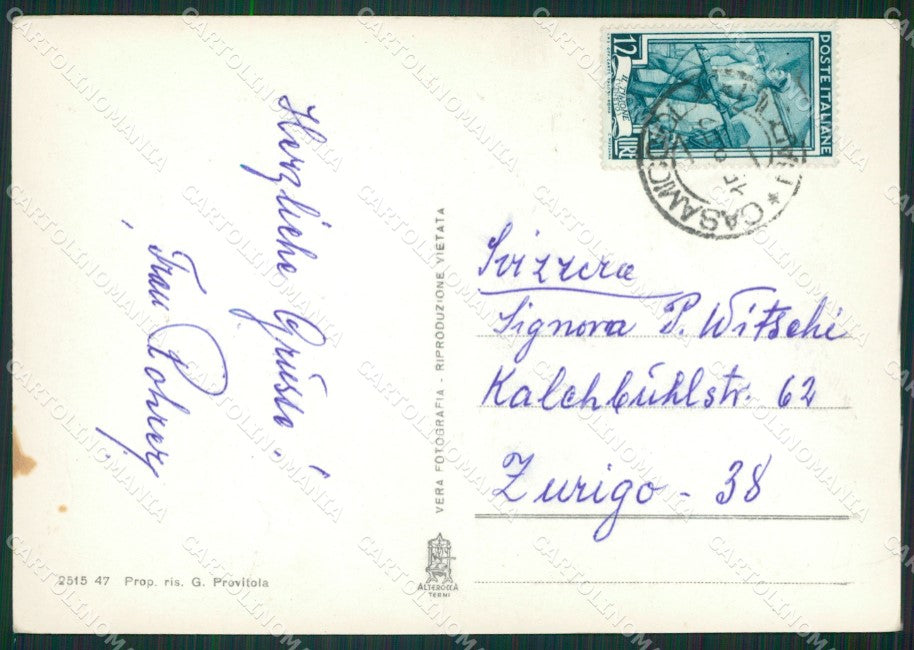 Herzliche Grüsse!
Frau Rohrer
VERA FOTOGRAFIA - RIPRODUZIONE VIETATA
2515 47 Prop. ris. G. Provitola
ALTEROCCA
TERNI
12
POSTE ITALIANE
LIRE
CASAMICCIOLA
Svizzera
Signora P. Witschi
Kalchbühlstr. 62
Zurigo - 38
CARTOLINOMANIA